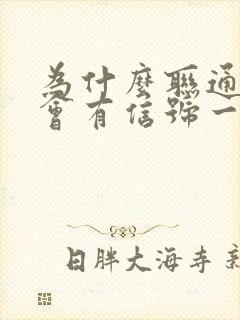 為什麼聯通
會有信號一
日胖大海寺